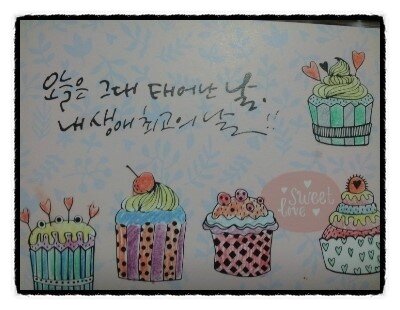 오늘은 그대 태어난 날.
내 생애 최고의 날!!
sweet
love